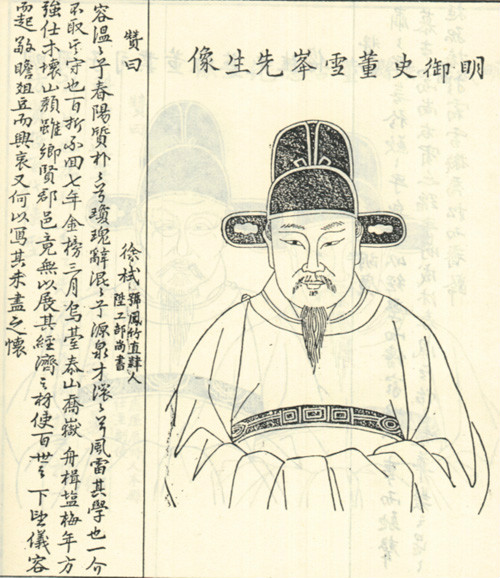 明御史董雪峯先生像
贊曰
徐栻
號鳳竹直隸人
陞工部尚書
容温〻乎春陽質朴〻兮瓊瑰辭混〻乎源泉才滚〻兮風雷其學也一介
不取其守也百折不回七年金榜三月烏臺泰山喬嶽舟楫塩梅年方
強仕木壞山頹雖鄉賢郡邑竟無以展其經濟之材使百世之下望儀容
而起敬瞻俎豆而興哀又何以寫其未盡之懷